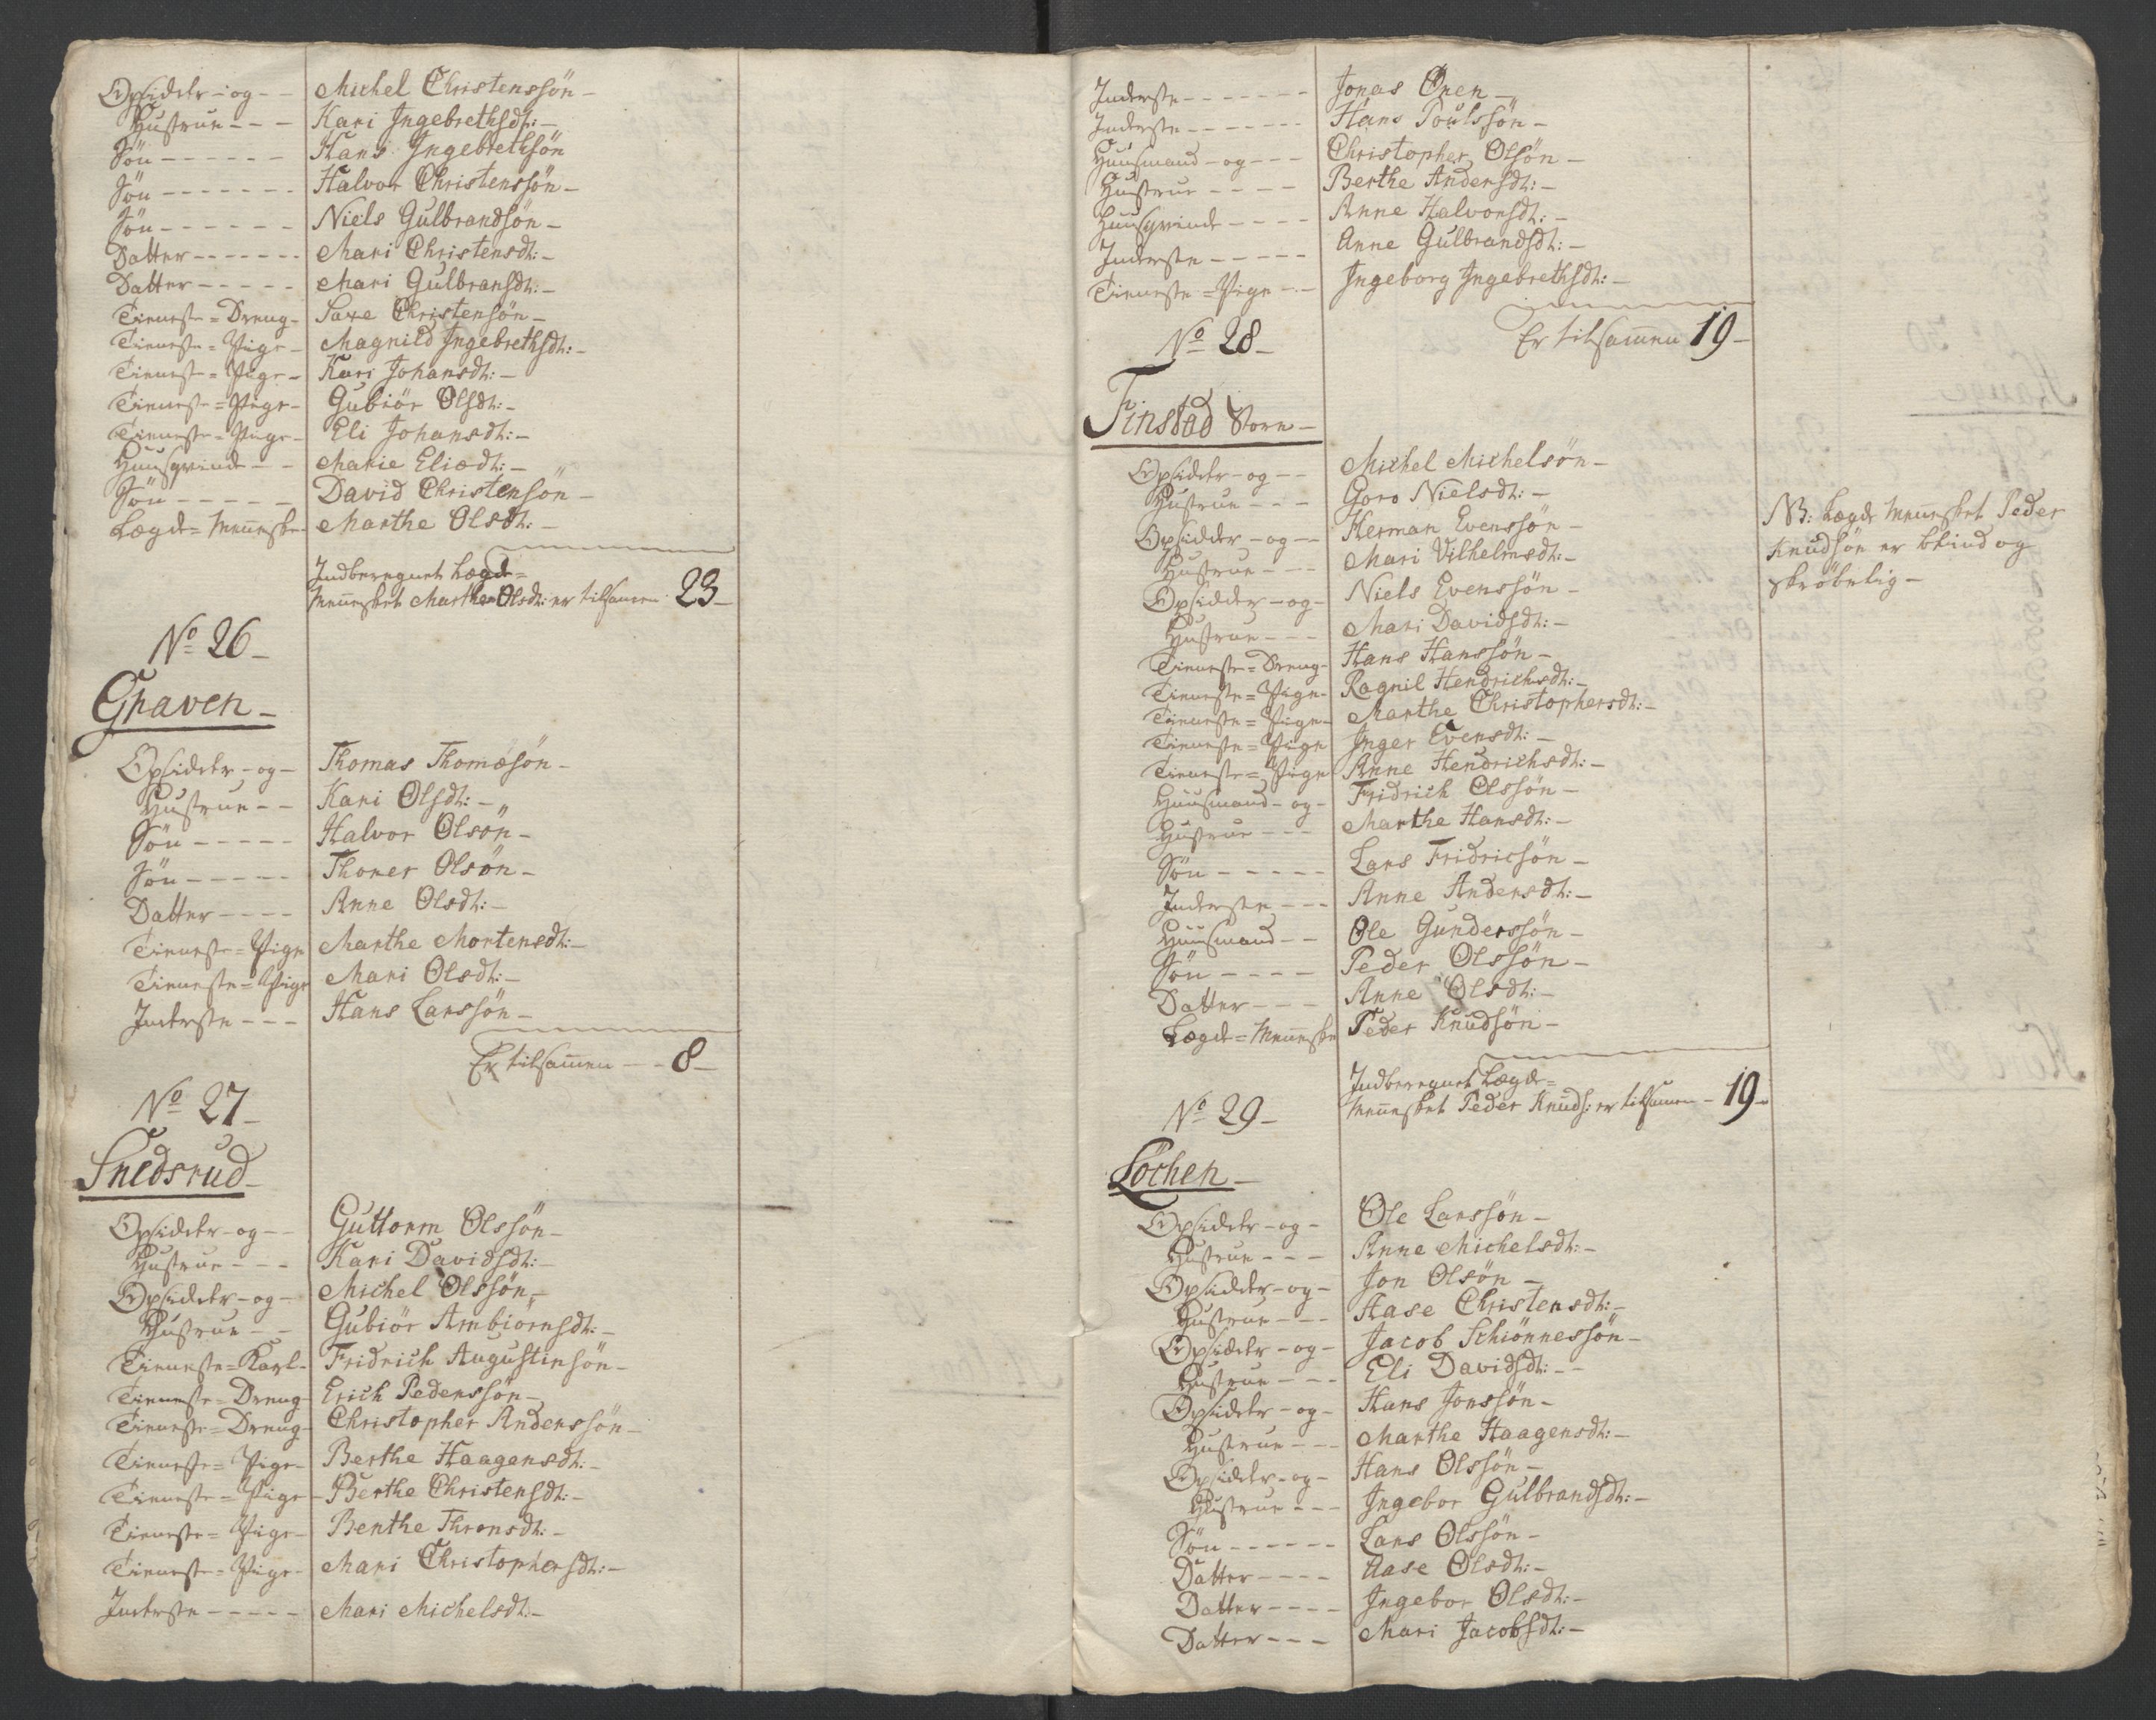 Opsidder - og - - Michel Christenssön -
Hustrue - - - Kari Ingebrethsdt: -
Sön - - - - - - Hans Ingebrethsön
Sön - - - - - - - Halvor Christenssön -
Sön - - - - - - Niels Gulbrandsön -
Datter - - - - - - - Mari Christensdt: -
Datter - - - - - Mari Gulbransdt: -
Tieneste = Dreng - Saxe Christensön -
Tieneste = Pige - Magnild Ingebrethsdt: -
Tieneste = Pige - Kari Johansdt: -
Tieneste = Pige - Gubiör Olsdt: -
Tieneste = Pige - Eli Johansdt: -
Huusqvinde - - Marie Eliædt: -
Sön - - - - - David Christensön -
Lægde = Menneske - Marthe Olsdt: -
Indberegnet Lægde =
Mennesket Marthe Olsdt: er tilsamen 23 -
No 26 -
Graven -
Opsidder - og - Thomas Thomæsön -
Hustrue - - Kari Olsdt: -
Sön - - - - - Halvor Olsön -
Sön - - - - - Thorer Olsön -
Datter - - - - Anne Olsdt: -
Tieneste = Pige Marthe Mortensdt: -
Tieneste = Pige Mari Olsdt: -
Inderste - - - Hans Larssön -
Er tilsamen - - - 8 -
No 27 -
Snedsrud -
Opsidder - og - - Guttorm Olssön -
Hustrue - - - Kari Davidsdt: -
Opsidder - og - Michel Olssön -
Hustrue - - Gubiör Ambiörnsdt: -
Tieneste = Karl - Fridrich Augustinsön -
Tieneste = Dreng Erich Pederssön -
Tieneste = Dreng - Christopher Anderssön -
Tieneste = Pige - Berthe Haagensdt: -
Tieneste = Pige - Berthe Christensdt: -
Tieneste = Pige - Benthe Thronsdt: -
Tieneste = Pige - Mari Christophersdt: -
Inderste - - - - - Mari Michelsdt: -
Inderste - - - - - - - Jonas Önen -
Inderste - - - - - - - Hans Poulssön -
Huusmand - og - - - Christopher Olsön -
Hustrue - - - - Berthe Andersdt: -
Huusqvinde - - - - Anne Halvorsdt: -
Inderste - - - - - Anne Gulbrandsdt: -
Tieneste = Pige - - Ingeborg Ingebrethsdt: -
Er tilsamen 19 -
No 28 -
Finstad Store -
Opsidder - og - - Michel Michelsön -
Hustrue - - - Goro Nielsdt: -
Opsidder - og - - Herman Evenssön -
Hustrue - - - Mari Vilhelmsdt: -
Opsidder - og - Niels Evenssön -
Hustrue - - - Mari Davidsdt: -
Tieneste = Dreng - Hans Hanssön -
Tieneste = Pige - Ragnil Hendrichsdt: -
Tieneste = Pige - Marthe Christophersdt: -
Tieneste = Pige Inger Evensdt: -
Tieneste = Pige Anne Hendrichsdt: -
Huusmand - og - Fridrich Olssön -
Hustrue - - - Marthe Hansdt: -
Sön - - - - - Lars Fridricsön -
Inderste - - - Anne Andersdt: -
Huusmand - - Ole Gunderssön -
Sön - - - - Peder Olssön -
Datter - - - Anne Olsdt: -
Lægde = Menneske Peder Knudsön -
Indberegnet Lægde =
Mennesket Peder Knuds: er tilsamen - 19 -
NB: Lægde Mennesket Peder
Knudsön er blind og
skröbelig -
No 29 -
Löchen -
Opsidder - og - Ole Larssön -
Hustrue - - - Anne Michelsdt: -
Opsidder - og - Jon Olsön -
Hustrue - - - Aase Christensdt: -
Opsidder - og - Jacob Schiönnessön -
Hustrue - - - Eli Davidsdt: - -
Opsidder - og - Hans Jonssön -
Hustrue - - - Marthe Haagensdt: -
Opsidder - og - Hans Olssön -
Hustrue - - - Ingebor Gulbrandsdt: -
Sön - - - - - - Lars Olssön -
Datter - - - - Aase Olsdt: -
Datter - - - - Ingebor Olsdt: -
Datter - - - Mari Jacobsdt: -